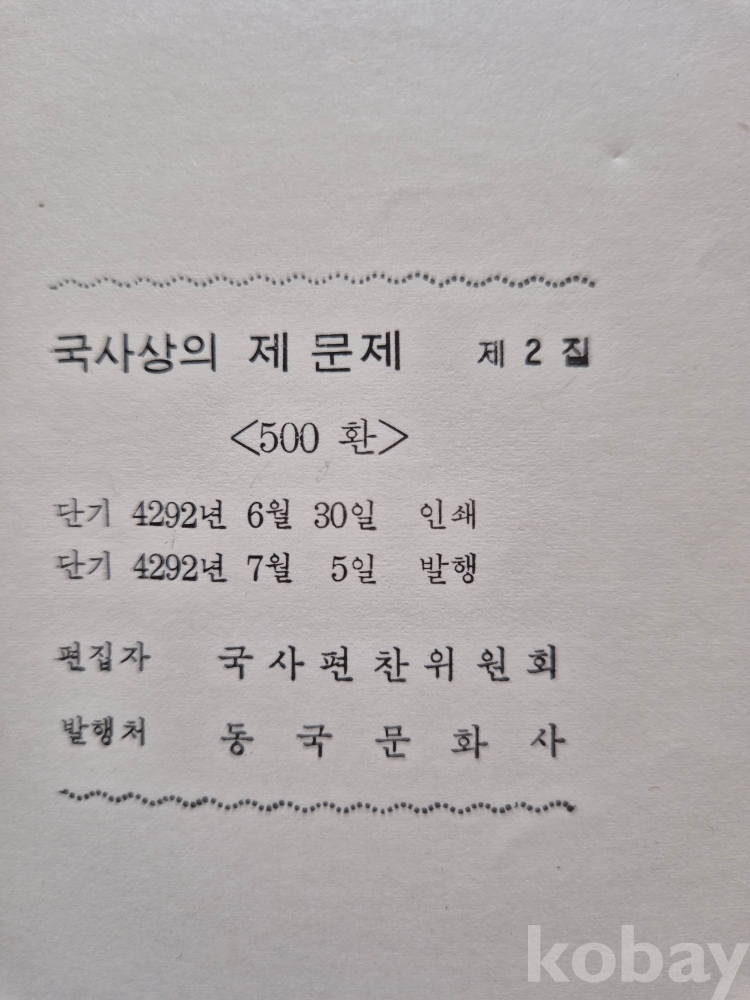 국사상의 제 문제 제 2 집
<500 환>
단기 4292년 6월 30일 인쇄
단기 4292년 7월 5일 발행
편집자 국사편찬위원회
발행처 동국문화사
kobay